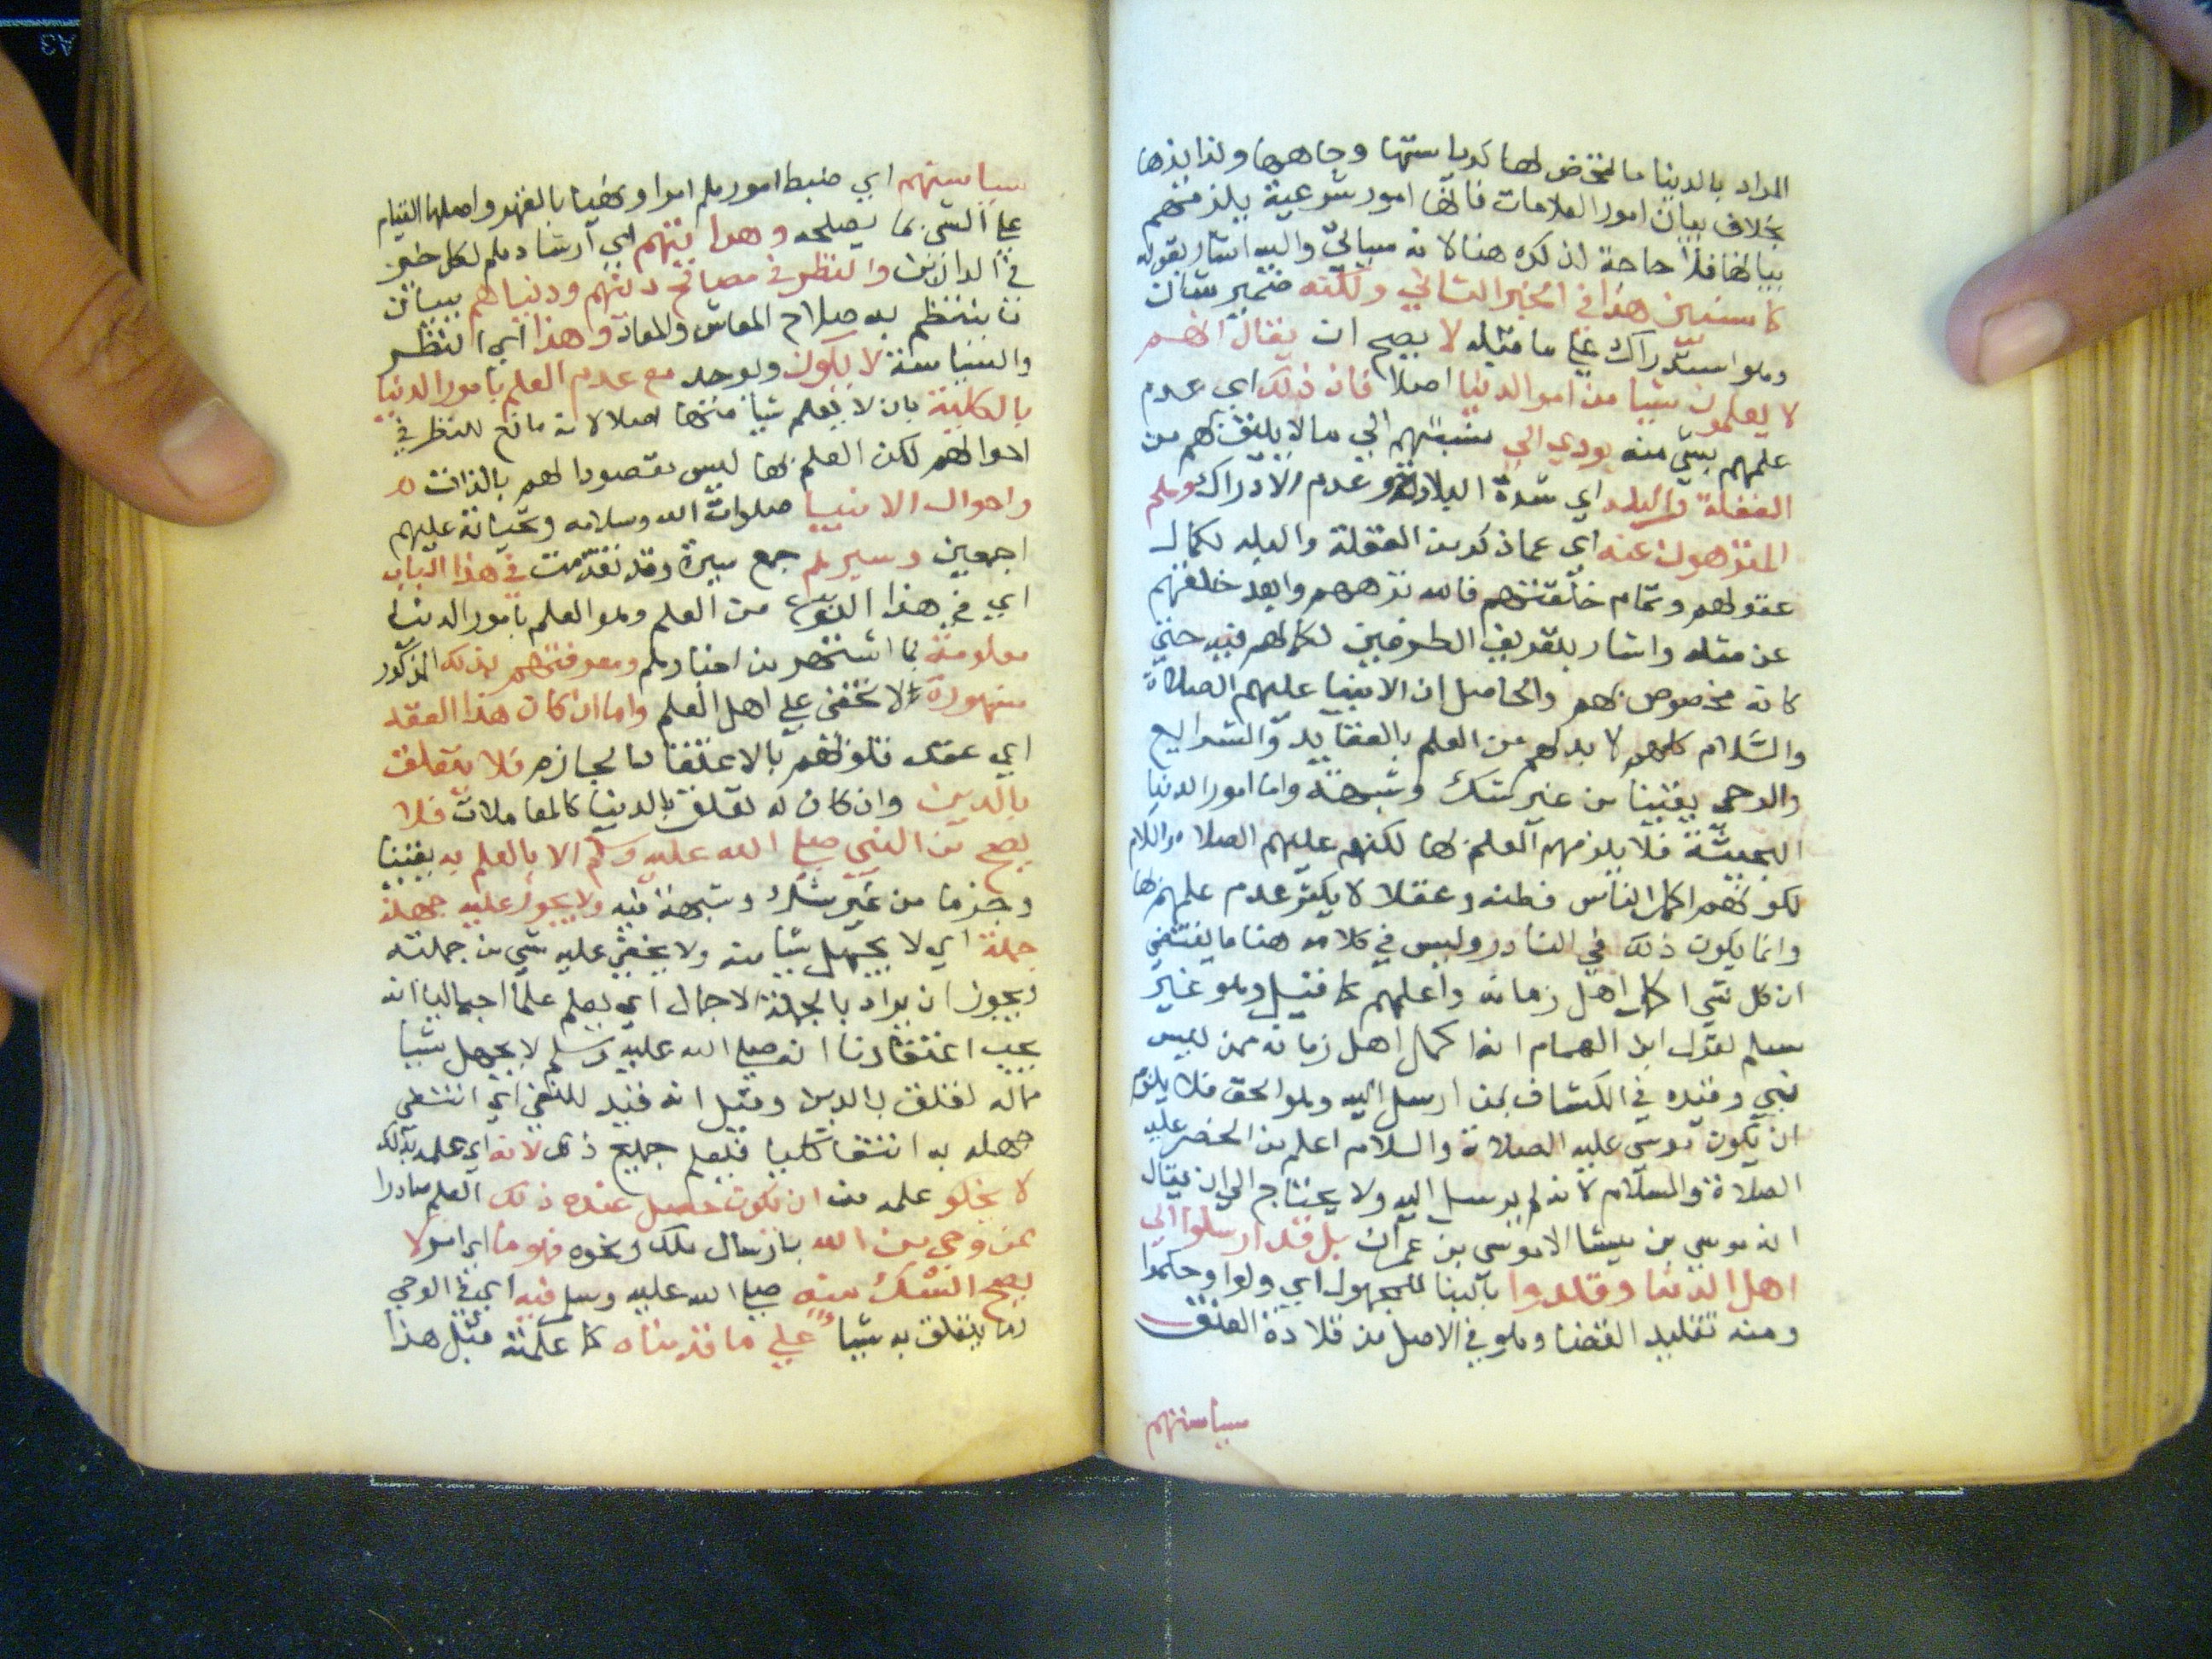 المراد بالدينا ما تمحض لها كرياستها وجاهها ولذايذها
بخلاف بيان امور العلامات فانها امور شرعية يلزمهم
بيانها فلا حاجة لذكره هنا لانه سياتي واليه اشار بقوله
كما سنبين هذا في الخبر الثاني ولكنه ضمير شان
وهو استدراك على ما قبله لا يصح ان يقال انهم
لا يعلمون شيا من امر الدنيا اصلا فان ذلك اي عدم
علمهم بشي منه يودي الى نسبتهم الي ما لا يليق بهم من
الغفلة والبله اي شدة البلادة وعدم الادراك وهم
المنزهون عنه اي عما ذكر من الغفلة والبله لكمال
عقولهم وتمام خلقتهم فالله نزههم وابعد خلقهم
عن مثله واشار بتعريف الطرفين لكمالهم فيه حتي
كانه مخصوص بهم والحاصل ان الانبيا عليهم الصلاة
والسلام كلهم لا بد لهم من العلم بالعقايد والشرايع
والوحي يقينا من غير شك وشبهة واما امور الدنيا
البحتة فلا يلزمهم العلم بها لكنهم عليهم الصلاة والسلام
لكونهم اكمل الناس فطنة وعقلا لا يكثر عدم علمهم بها
وانما يكون ذلك في النادر وليس في كلامه هنا ما يقتضي
ان كل نبي اكمل اهل زمانه واعلمهم كما قيل وهو غير
مسلم لقول ابن الهمام انه اكمل اهل زمانه ممن ليس
نبي وقيده في الكشاف بمن ارسل اليه وهو الحق فلا يلزم
ان يكون موسى عليه الصلاة والسلام اعلم من الخضر عليه
الصلاة والسلام لانه لم يرسل اليه ولا يحتاج الي ان يقال
انه موسي بن ميشا لا موسى بن عمران بل قد ارسلوا الي
اهل الدنيا وقلدوا بالبنا للمجهول اي ولوا وحكموا
ومنه تقليد القضا وهو في الاصل من قلادة العنق
سياستهم
سياستهم اي ضبط امورهم امرا ونهيا بالقهر واصلها القيام
على الشي بما يصلحه وهدايتهم اي ارشادهم لكل خير
في الدارين والنظر في مصالح دينهم ودنياهم ببيان
ما ينتظم به صلاح المعاش والمعاد وهذا اي النظر
والسياسة لا يكون ويوجد مع عدم العلم بامور الدنيا
بالكلية بان لا يعلم شيا منها اصلا لانه مانع للنظر في
احوالهم لكن العلم بها ليس مقصودا لهم بالذات
واحوال الانبيا صلوات الله وسلامه وتحياته عليهم
اجمعين وسيرهم جمع سيرة وقد تقدمت في هذا الباب
اي في هذا النوع من العلم وهو العلم بامور الدنيا
معلومة بما اشتهر من اخبارهم ومعرفتهم بذلك المذكور
مشهورة لا تخفى علي اهل العلم واما ان كان هذا العقد
اي عقد قلوبهم بالاعتقاد الجازم فلا يتعلق
بالدين وان كان له تعلق بالدينا كالمعاملات فلا
يصح من النبي صلى الله عليه وسلم الا بالعلم به يقينا
وجزما من غير شك وشبهة فيه ولا يجوز عليه جهله
جملة اي لا يجهل شيا منه ولا يخفى عليه شي من جملته
ويجوز ان يراد بالجملة الاجمال اي يعلم علما اجماليا انه
يجب اعتقادنا انه صلى الله عليه وسلم لا يجهل شيا
مما له تعلق بالدين وقيل انه قيد للنفي اي انتفي
جهله به انتفا كليا فيعلم جميع ذلك لانه اي علمه بذلك
لا يخلو علمه من ان يكون حصل عنده ذلك العلم صادرا
عن وحي من الله بارسال ملك ونحوه فهو ما اي امر لا
يصح الشك منه صلى الله عليه وسلم فيه اي في الوحي
وما يتعلق به شيا علي ما قدمناه كما علمته قبل هذا